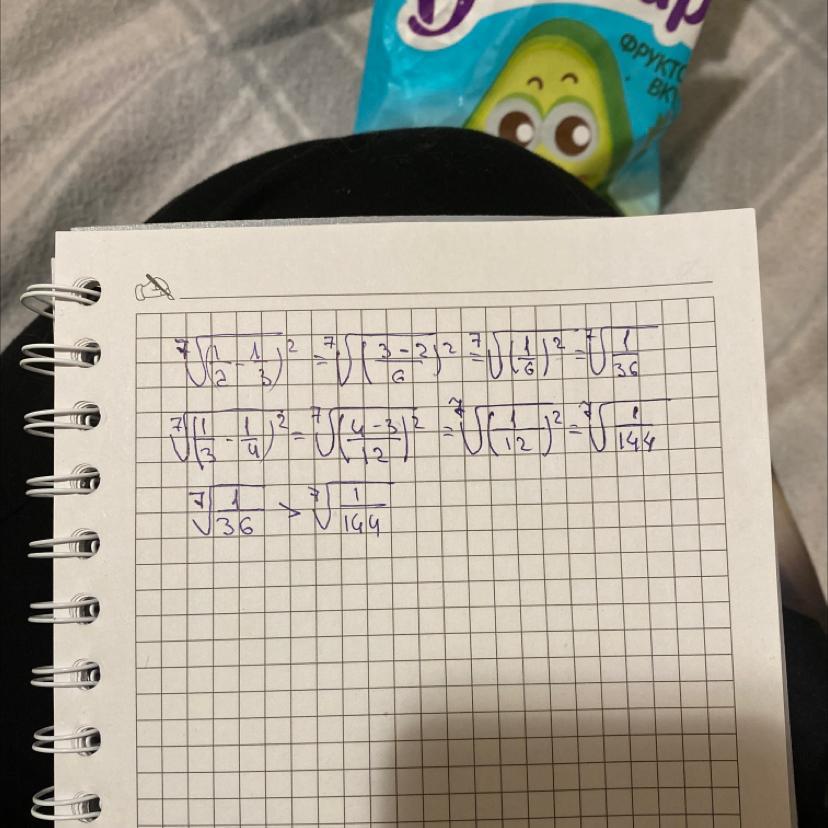 ФРУКТО
ВКУ
⁷√(1/2 - 1/3)² = ⁷√((3-2)/6)² = ⁷√(1/6)² = ⁷√(1/36)
⁷√(1/3 - 1/4)² = ⁷√((4-3)/12)² = ⁷√(1/12)² = ⁷√(1/144)
⁷√(1/36) > ⁷√(1/144)